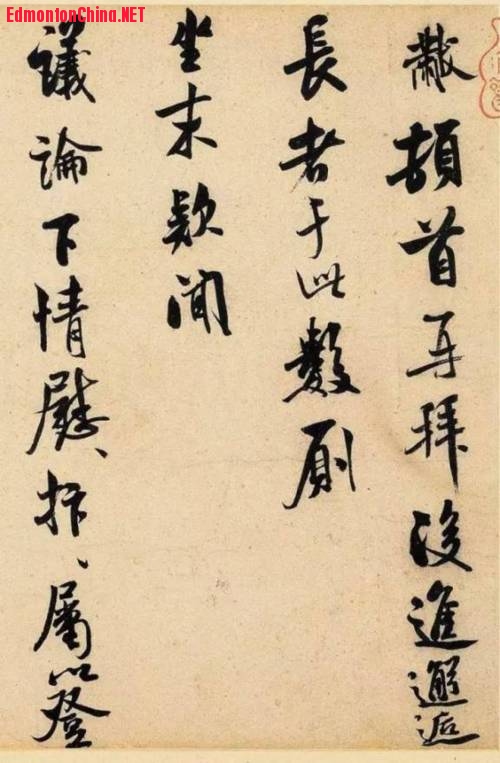 EdmontonChina.NET
黻頓首再拜後進邂逅
長者于此數厠
坐末款聞
議論下情慰、抃、屬以登